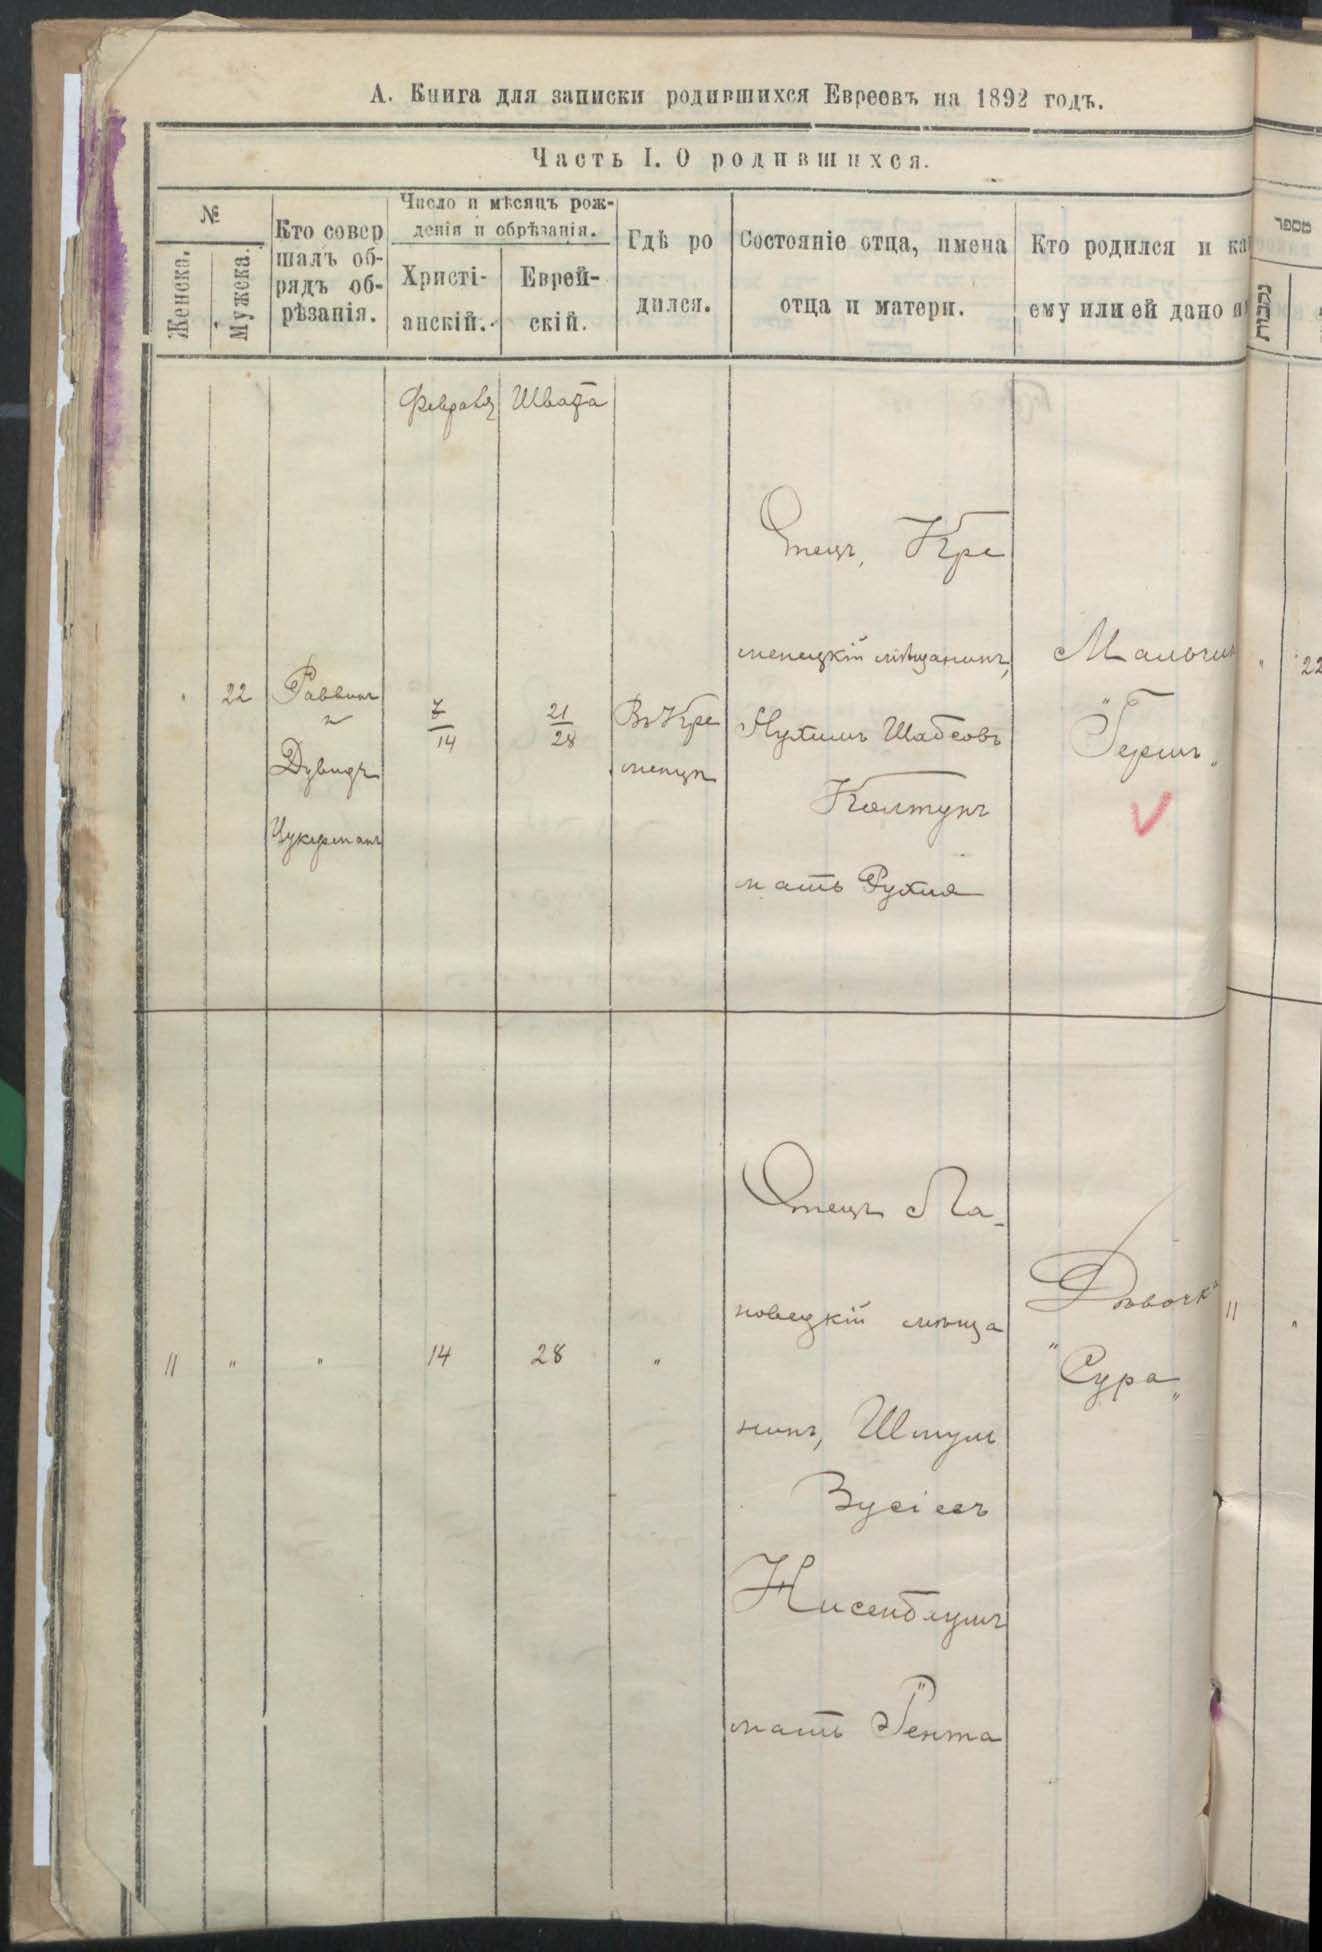 А. Книга для записки родившихся Евреевъ на 1892 годъ.
Часть I. О родившихся.
№
Женска.
Мужеска.
Кто совер
шалъ об-
рядъ об-
рѣзанія.
Число и мѣсяцъ рож-
денія и обрѣзанія.
Христі-
анскій.
Еврей-
скій.
Гдѣ ро
дился.
Состояніе отца, имена
отца и матери.
Кто родился и ка
ему или ей дано и
מספר
נקבות
Февраля
Швата
"
22
Раввинъ
Дувидъ
Цукерманъ
7
14
21
28
Въ Кре
менцѣ
Отецъ, Кре
менецкій мѣщанинъ,
Нухимъ Шабсовъ
Колтунъ
мать Рухля
Мальчик
"Гершъ"
"
22
11
"
"
14
28
"
Отецъ Ла-
новецкій мѣща
нинъ, Шмуль
Зусіевъ
Нисенблумъ
мать Рента
Дѣвочка
"Сура"
11
"